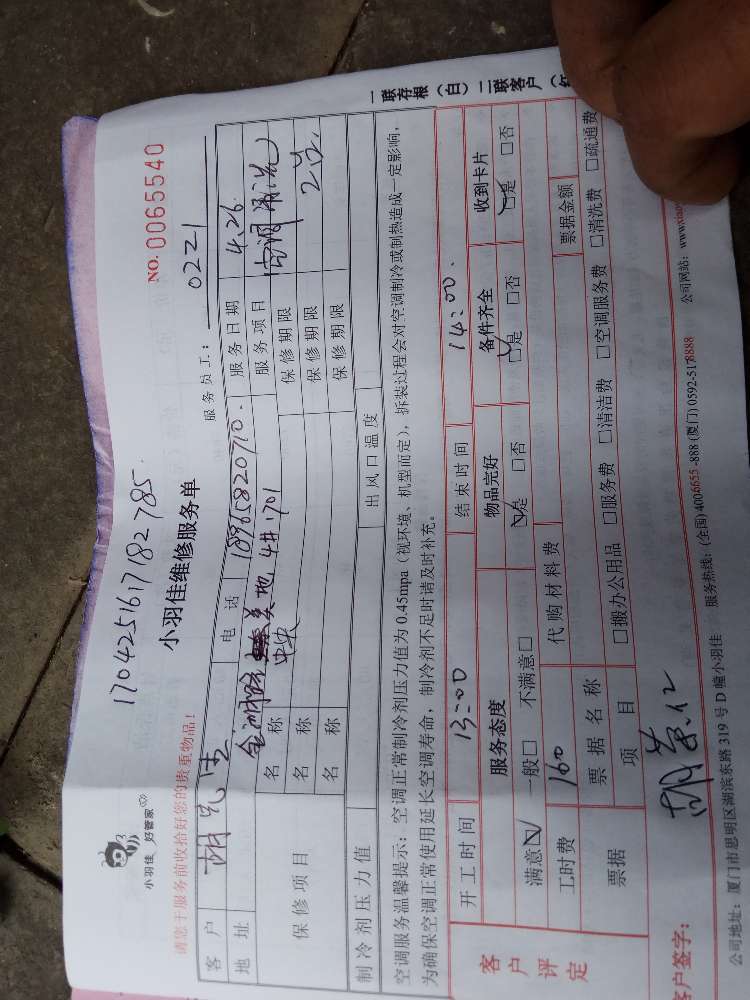 1704251617182785
小羽佳 好管家
小羽佳维修服务单
NO. 0065540
请您于服务前收拾好您的贵重物品！
服务员工： 0221
客户 胡先生 电话 18965820710 服务日期 4.26
地址 美地 4# 1701 服务项目 空调清洗
保修项目 名称 中央 保修期限
名称 保修期限 2台
名称 保修期限
制冷剂压力值 出风口温度
空调服务温馨提示：空调正常制冷剂压力值为 0.45mpa（视环境、机型而定），拆装过程会对空调制冷或制热造成一定影响，
为确保空调正常使用延长空调寿命，制冷剂不足时请及时补充。
客户评定 开工时间 13:00 结束时间 14:00
服务态度 物品完好 备件齐全 收到卡片
满意☑ 一般□ 不满意□ ☑是 □否 ☑是 □否 ☑是 □否
工时费 160 代购材料费
票据 票据名称 票据金额
项目 □搬办公用品 □服务费 □清洁费 □空调服务费 □清洗费 □疏通费
客户签字：
公司地址：厦门市思明区湖滨东路 319 号 D 幢小羽佳 服务热线：(全国) 4006655-888 (厦门) 0592-5178888 公司网站：www.xiaoy
一联存根（白）二联客户（